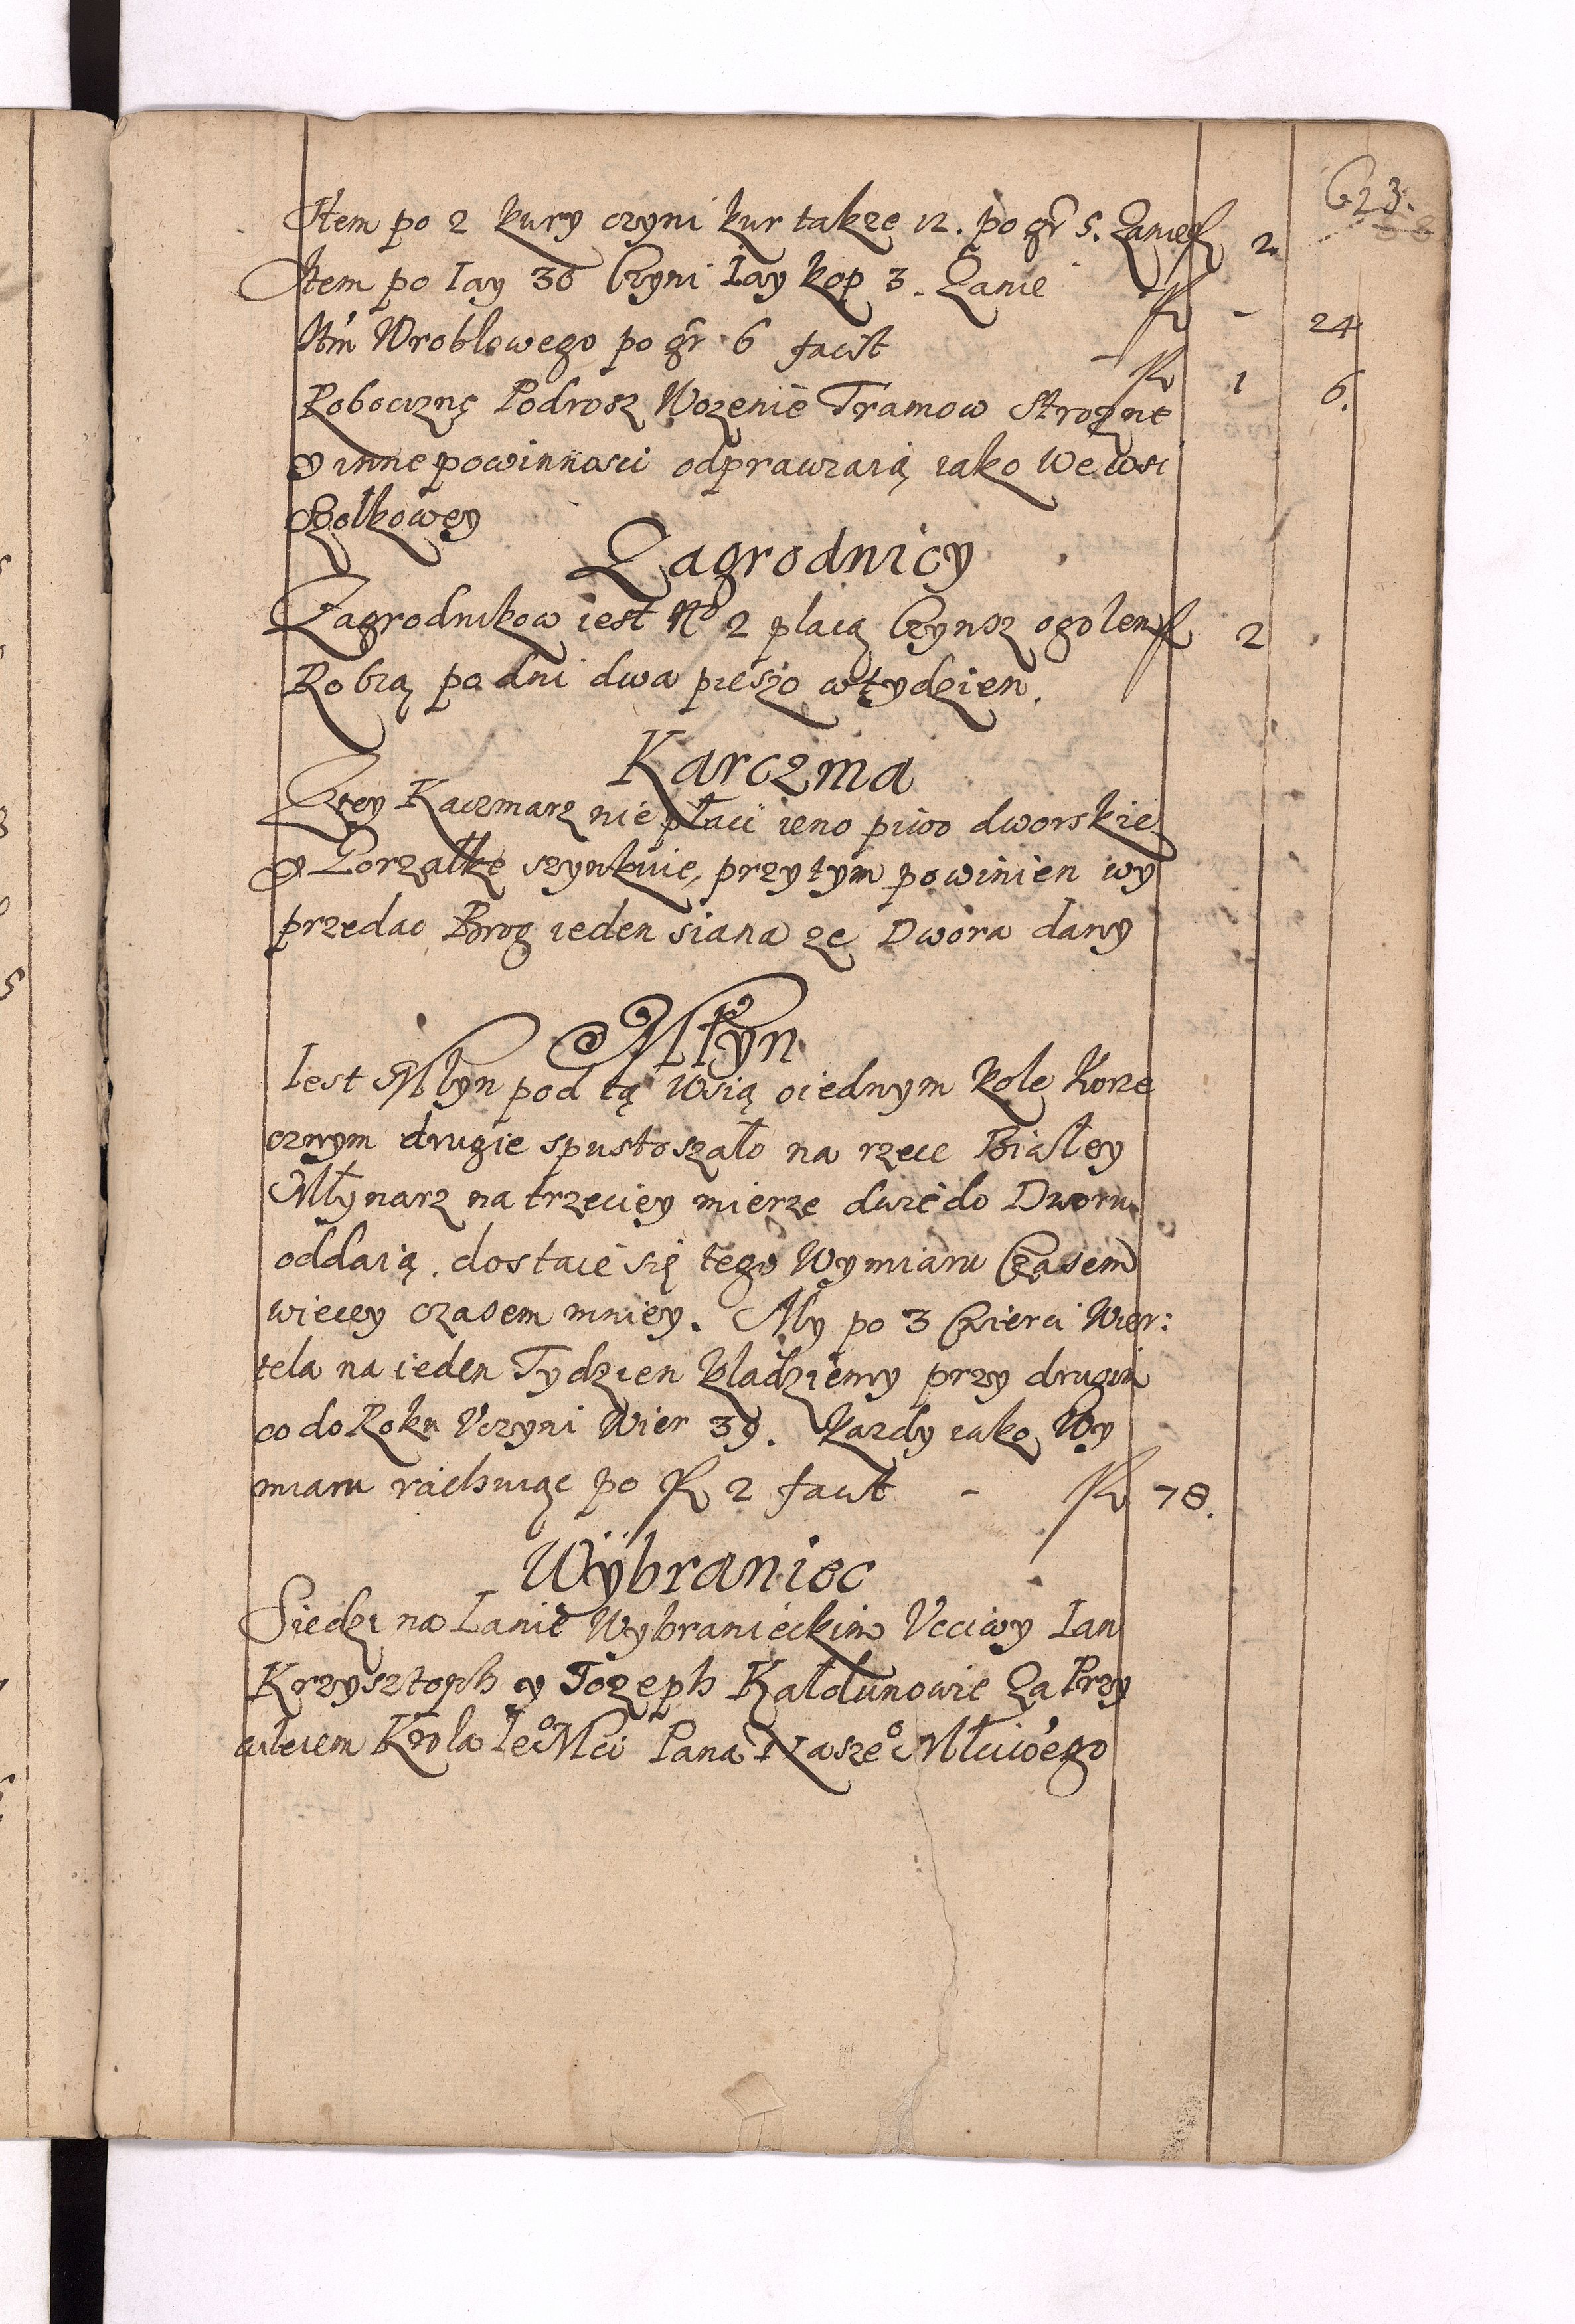 623.
Item po 2 kury czyni kur takze 12. po gr 5. Zanie fl 2
Item po Iay 36 Czyni Iay kop 3. Zanie fl - 24
Itm Wroblowego po gr 6 facit fl 1 6.
Robociznę Podrosz Wozenie Tramow Stroznę
y inne powinnosci odprawuią iako We wsi
Szolkowey
Zagrodnicy
Zagrodnikow iest No 2 placą Czynsz ogolem fl 2
Robią po dni dwa pieszo w tydzien.
Karczma
Ztey Kaczmarz nie płaci ieno piwo dworskie
y Gorzałkę szynkuie, przytym powinien wy
przedac Brog ieden siana ze Dwora dany
Młyn
Iest Mlyn pod tą Wsią oiednym kole Korze
cznym drugie spustoszało na rzece Białey
Młynarz na trzeciey mierze dwie do Dworu
oddaią. dostaie się tego Wymiaru Czasem
wiecey czasem mniey. My po 3 Cwierci Wier:
tela na ieden Tydzien kladziemy przy drugim
co do Roku Vczyni Wier 39. kazdy iako Wy
miaru rachuiąc po fl 2 facit - fl 78.
Wÿbraniec
Siedzi na Lanie Wybranieckim Vcciwy Ian
Krzysztoph y Iozeph Kałdunowie Za Przy
wileiem Krola Ieo Mci Pana Naszeo Młciwego